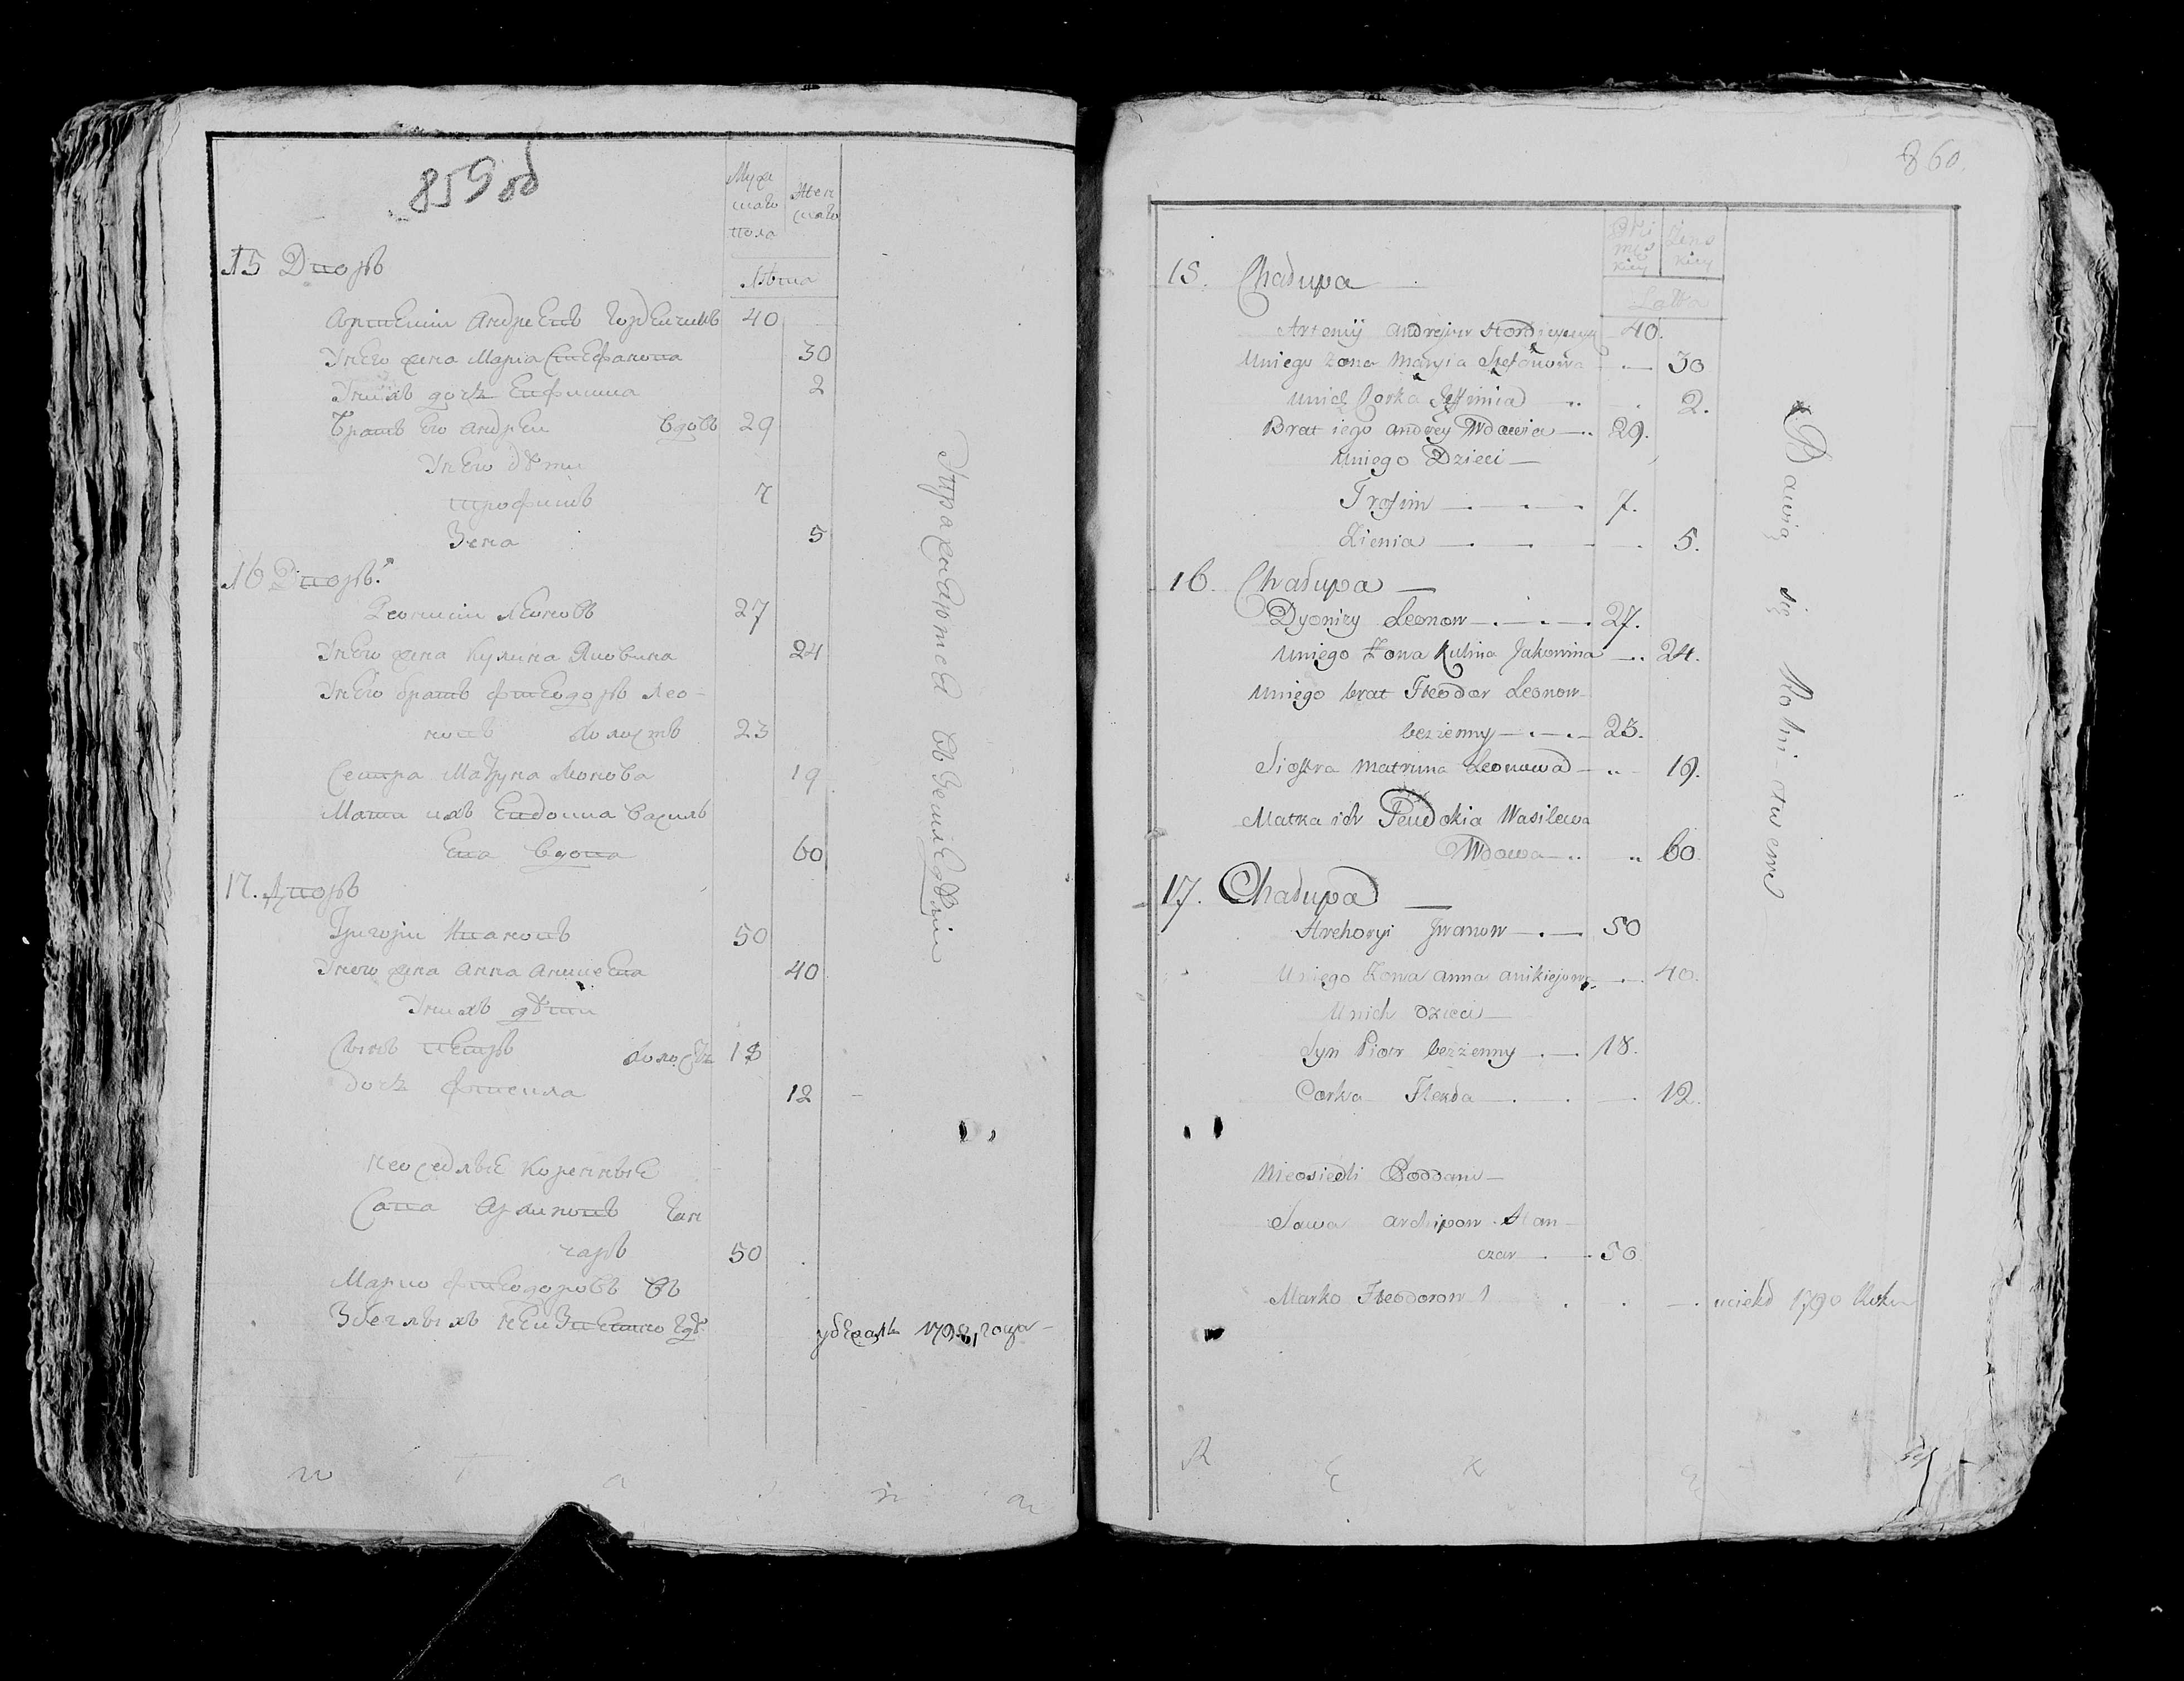 859 об
Муже
скаго
пола
Жен
скаго
Лѣта
15 Дворъ
Артемій Андреевъ Гордейчикъ 40
Унего жена Марія Стефанова 30
Унихъ дочь Евфимия 2
Братъ его Андрей вдовъ 29
Унего дѣти
Трофимъ 7
Зеня 5
16 Дворъ
Деонисій Леоновъ 27
Унего жена Кулина Яковина 24
Унего братъ Фтеодоръ Лео-
новъ холостъ 23
Сестра Матруна Леонова 19
Мати ихъ Евдокиа Василь
ева вдова 60
17. Дворъ
Григорій Ивановъ 50
Унего жена Анна Аникиева 40
Унихъ дѣти
Сынъ Петръ холостъ 18
дочь Фтекла 12
неоседлые коренные
Сава Архиповъ Ган
чаръ 50
Марко Фтеодоровъ въ
збеглыхъ неизвестно гдѣ
убежалъ 1798 года
Упражняются въ земледѣліи
860.
Mę
skiey
Żens
kiey
Latta
15. Chałupa
Artemij Andrejew Hordieyczyk 40.
Uniego żona Maryia Stefanowa 30
Unich Corka Jeffimia 2.
Brat iego Andrey Wdowiec 29.
Uniego Dzieci
Trofim 7.
Zienia 5.
16. Chałupa
Dyonizy Leonow 27.
Uniego Żona Kulina Jakowina 24.
Uniego brat Fteodor Leonow
bezżenny 23.
Siostra Matruna Leonowa 19.
Matka ich Jewdokia Wasilewa
Wdowa 60.
17. Chałupa
Hrehoryi Jwanow 50
Uniego Żona Anna Anikiejowa 40.
Unich Dzieci
Syn Piotr bezżenny 18.
Corka Ftekla 12.
Nieosiedli Poddani
Sawa Archipow Han
czar 50.
Marko Fteodorow uciekł 1790 Roku
Bawią się Rolnictwem